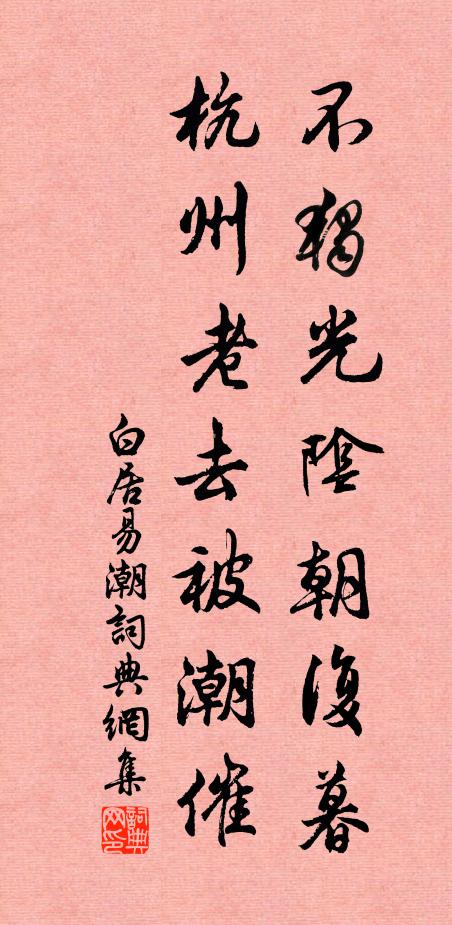 不獨光陰朝復暮
杭州老去被潮催
白居易潮詞典網集
詞典网印